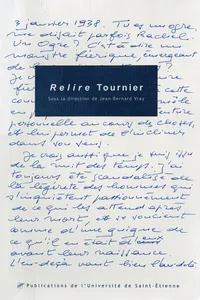 3 janvier 1938. Tu es un ogre,
me disait parfois Rachel.
Un Ogre? C'est à dire un
monstre féerique, émergeant
Relire Tournier
Sous la direction de Jean-Bernard Vray
personnelle au cours des choses,
et lui permet de l'incliner
dans son sens.
Je crois aussi que je suis issu
de la nuit des temps. J'ai
toujours été scandalisé de
la légèreté des hommes qui
s'inquiètent passionnément
de ce qui les attend après
leur mort, et se soucient
comme d'une guigne de
ce qu'il en était d'eux
avant leur naissance.
L'en-deçà vaut bien l'au-delà
Publications de l'Université de Saint-Étienne